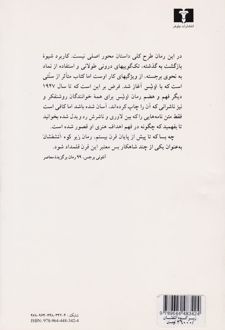 در این رمان طرح کلی داستان محور اصلی نیست. کاربرد شیوهٔ
بازگشت به گذشته، تک‌گویی‌های درونی طولانی و استفاده از نماد
به نحوی برجسته، از ویژگی‌های کار اوست اما کتاب متأثر از سنتی
است که با اولیس آغاز شد. فرض بر این است که تا سال ۱۹۴۷
دیگر فهم و هضم رمان اولیس برای همهٔ خوانندگان روشنفکر و
نیز ناشرانی که آن را چاپ کرده‌اند، آسان شده باشد اما کافی است
فقط متن نامه‌هایی را که بین لاوری و ناشرش رد و بدل شده بخوانید
تا بفهمید که چگونه در فهم اهداف هنری او قصور شده است.
چه بسا که تا پیش از پایان قرن بیستم، رمان زیر کوه آتشفشان
به‌عنوان یکی از چند شاهکار بس معتبر این قرن قلمداد شود.
آنتونی برجس، ۹۹ رمان برگزیدهٔ معاصر
ISBN: 978-964-448-342-4
9 789644 483424